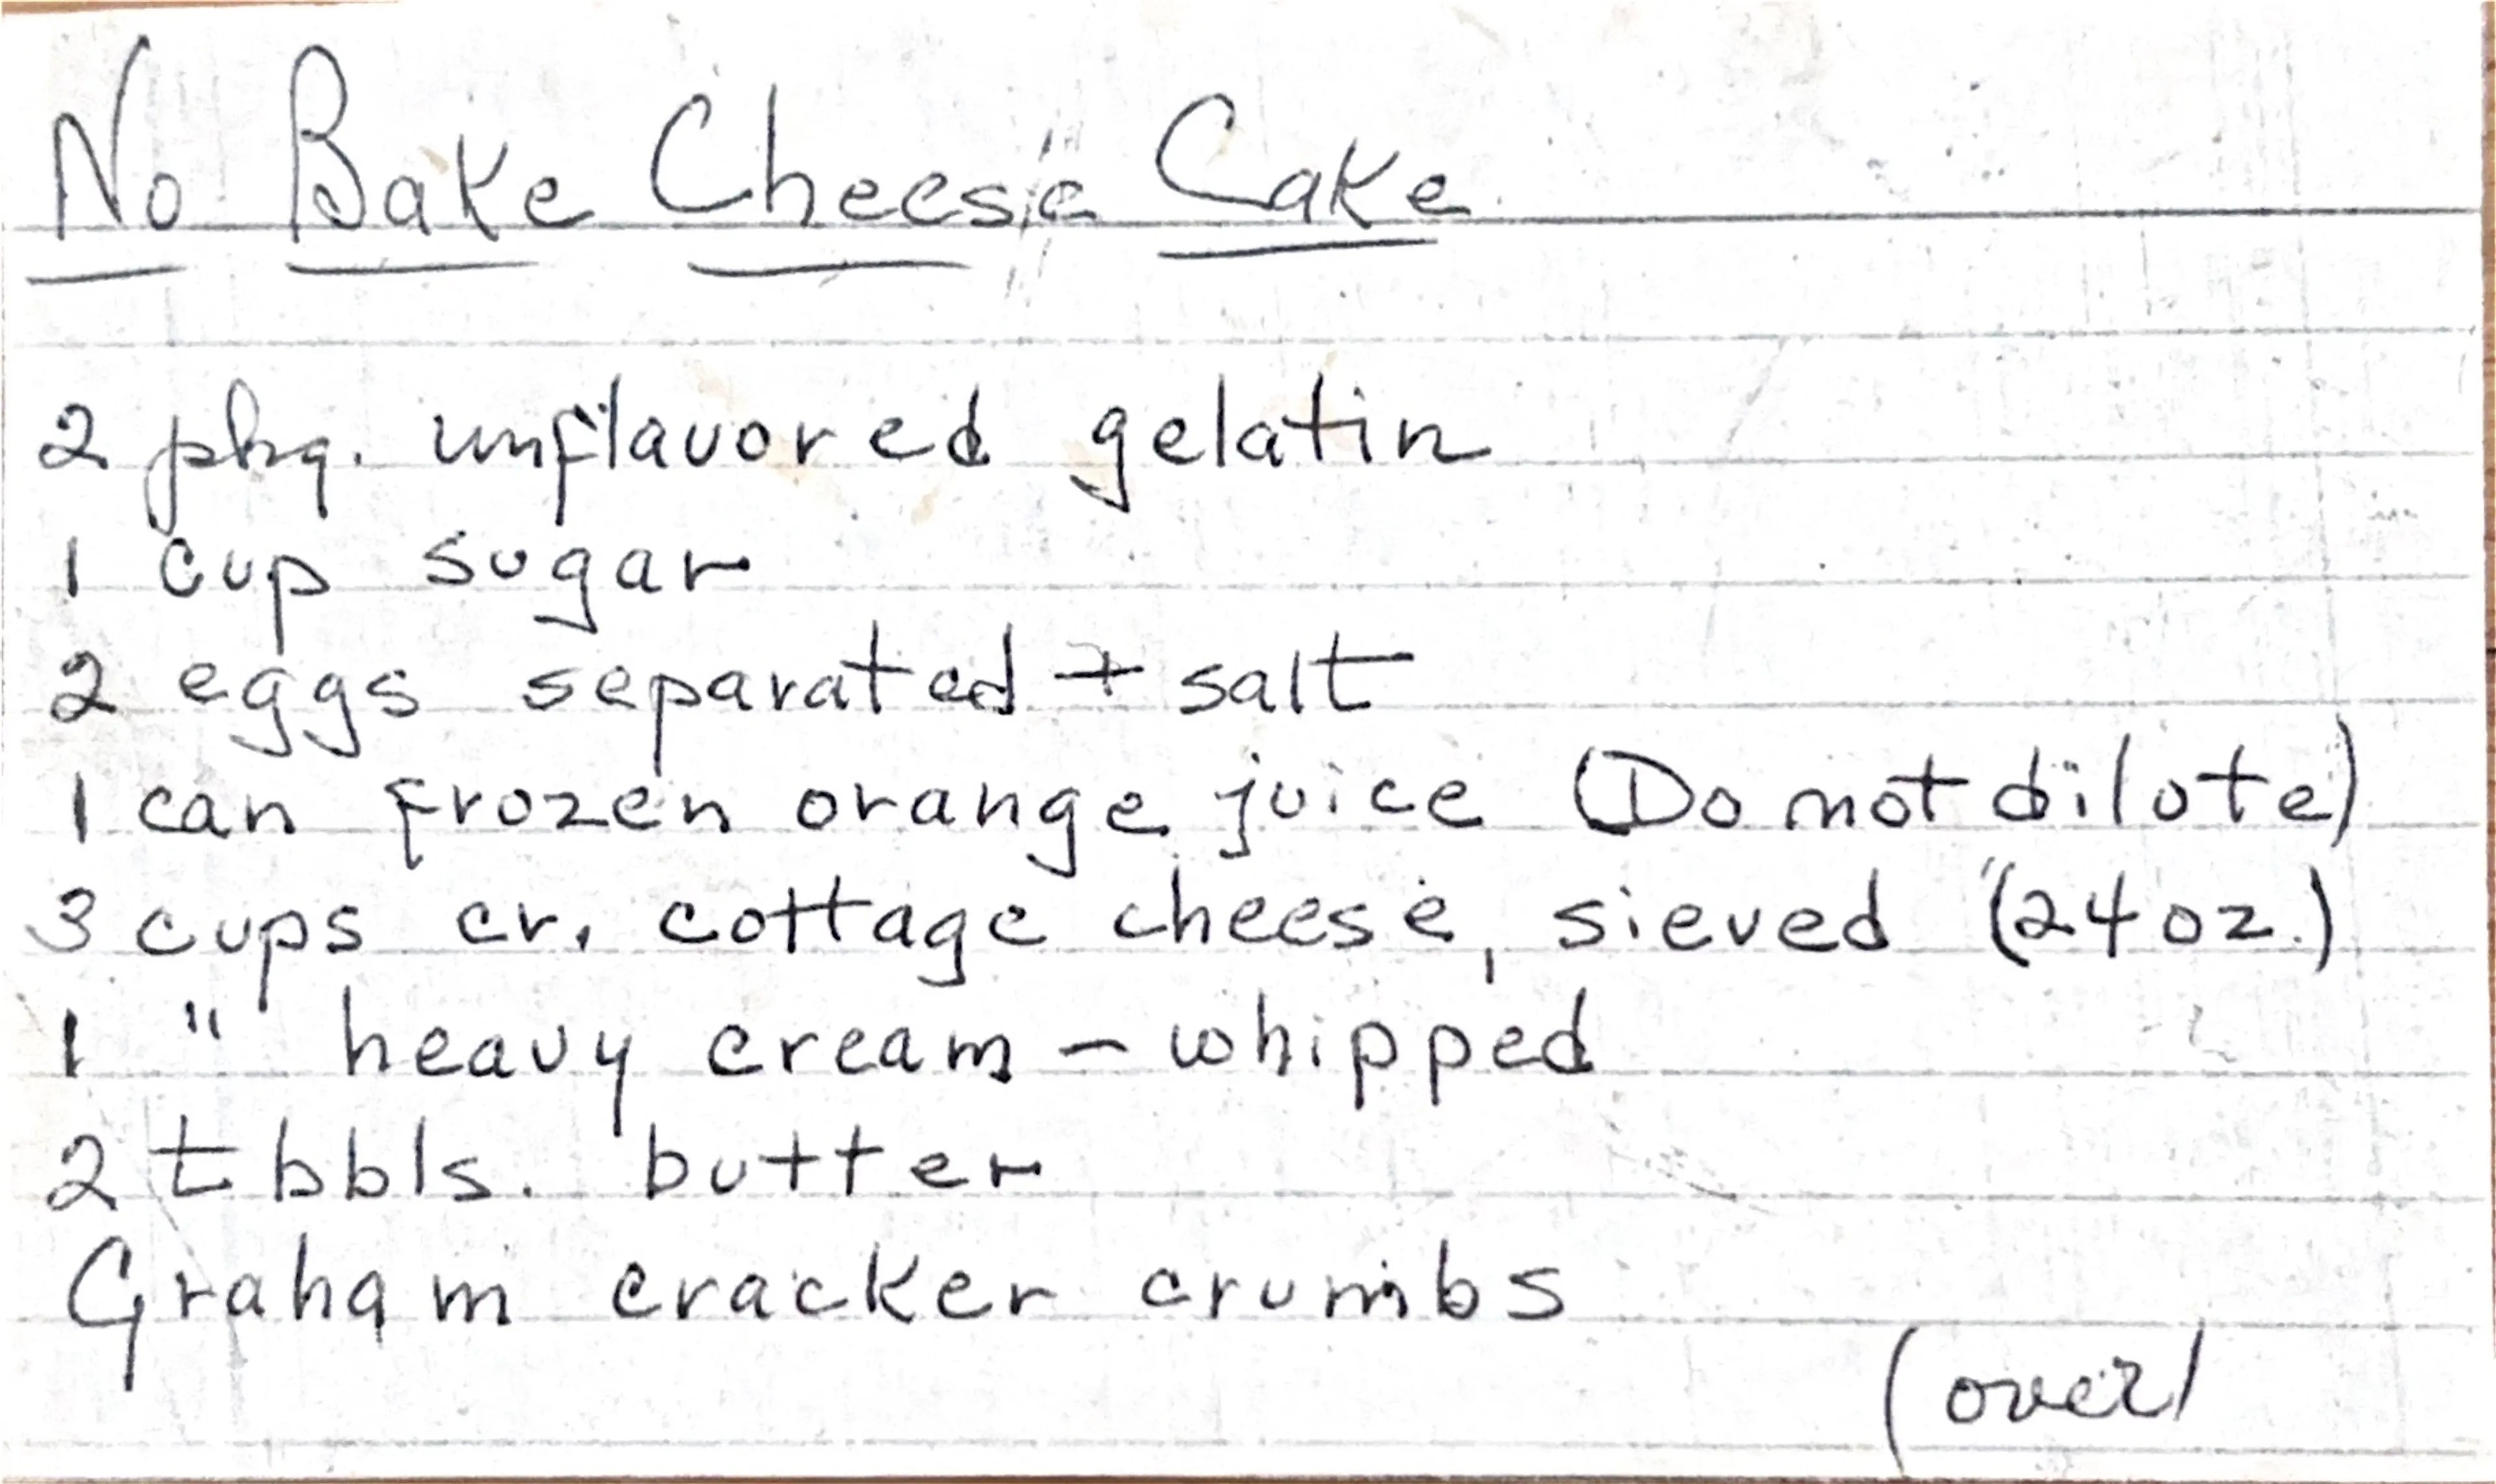 No Bake Cheese Cake
2 pkg. unflavored gelatin
1 cup sugar
2 eggs separated + salt
1 can frozen orange juice (Do not dilute)
3 cups cr. cottage cheese, sieved (24 oz.)
1 " heavy cream - whipped
2 tbbls. butter
Graham cracker crumbs
(over)